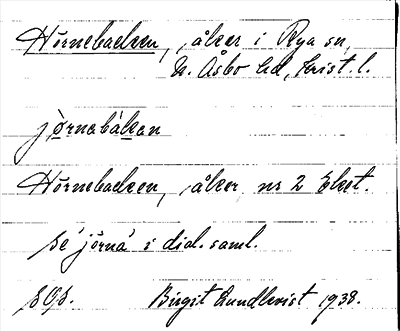 Hörnebacken, åker i Rya sn,
N. Åsbo hd, Krist. l.
jø̀rnabákan
Hörnebacken, åker nr 2 Eket.
se 'jörna' i dial. saml.
sOs. Birgit Lundkvist 1938.